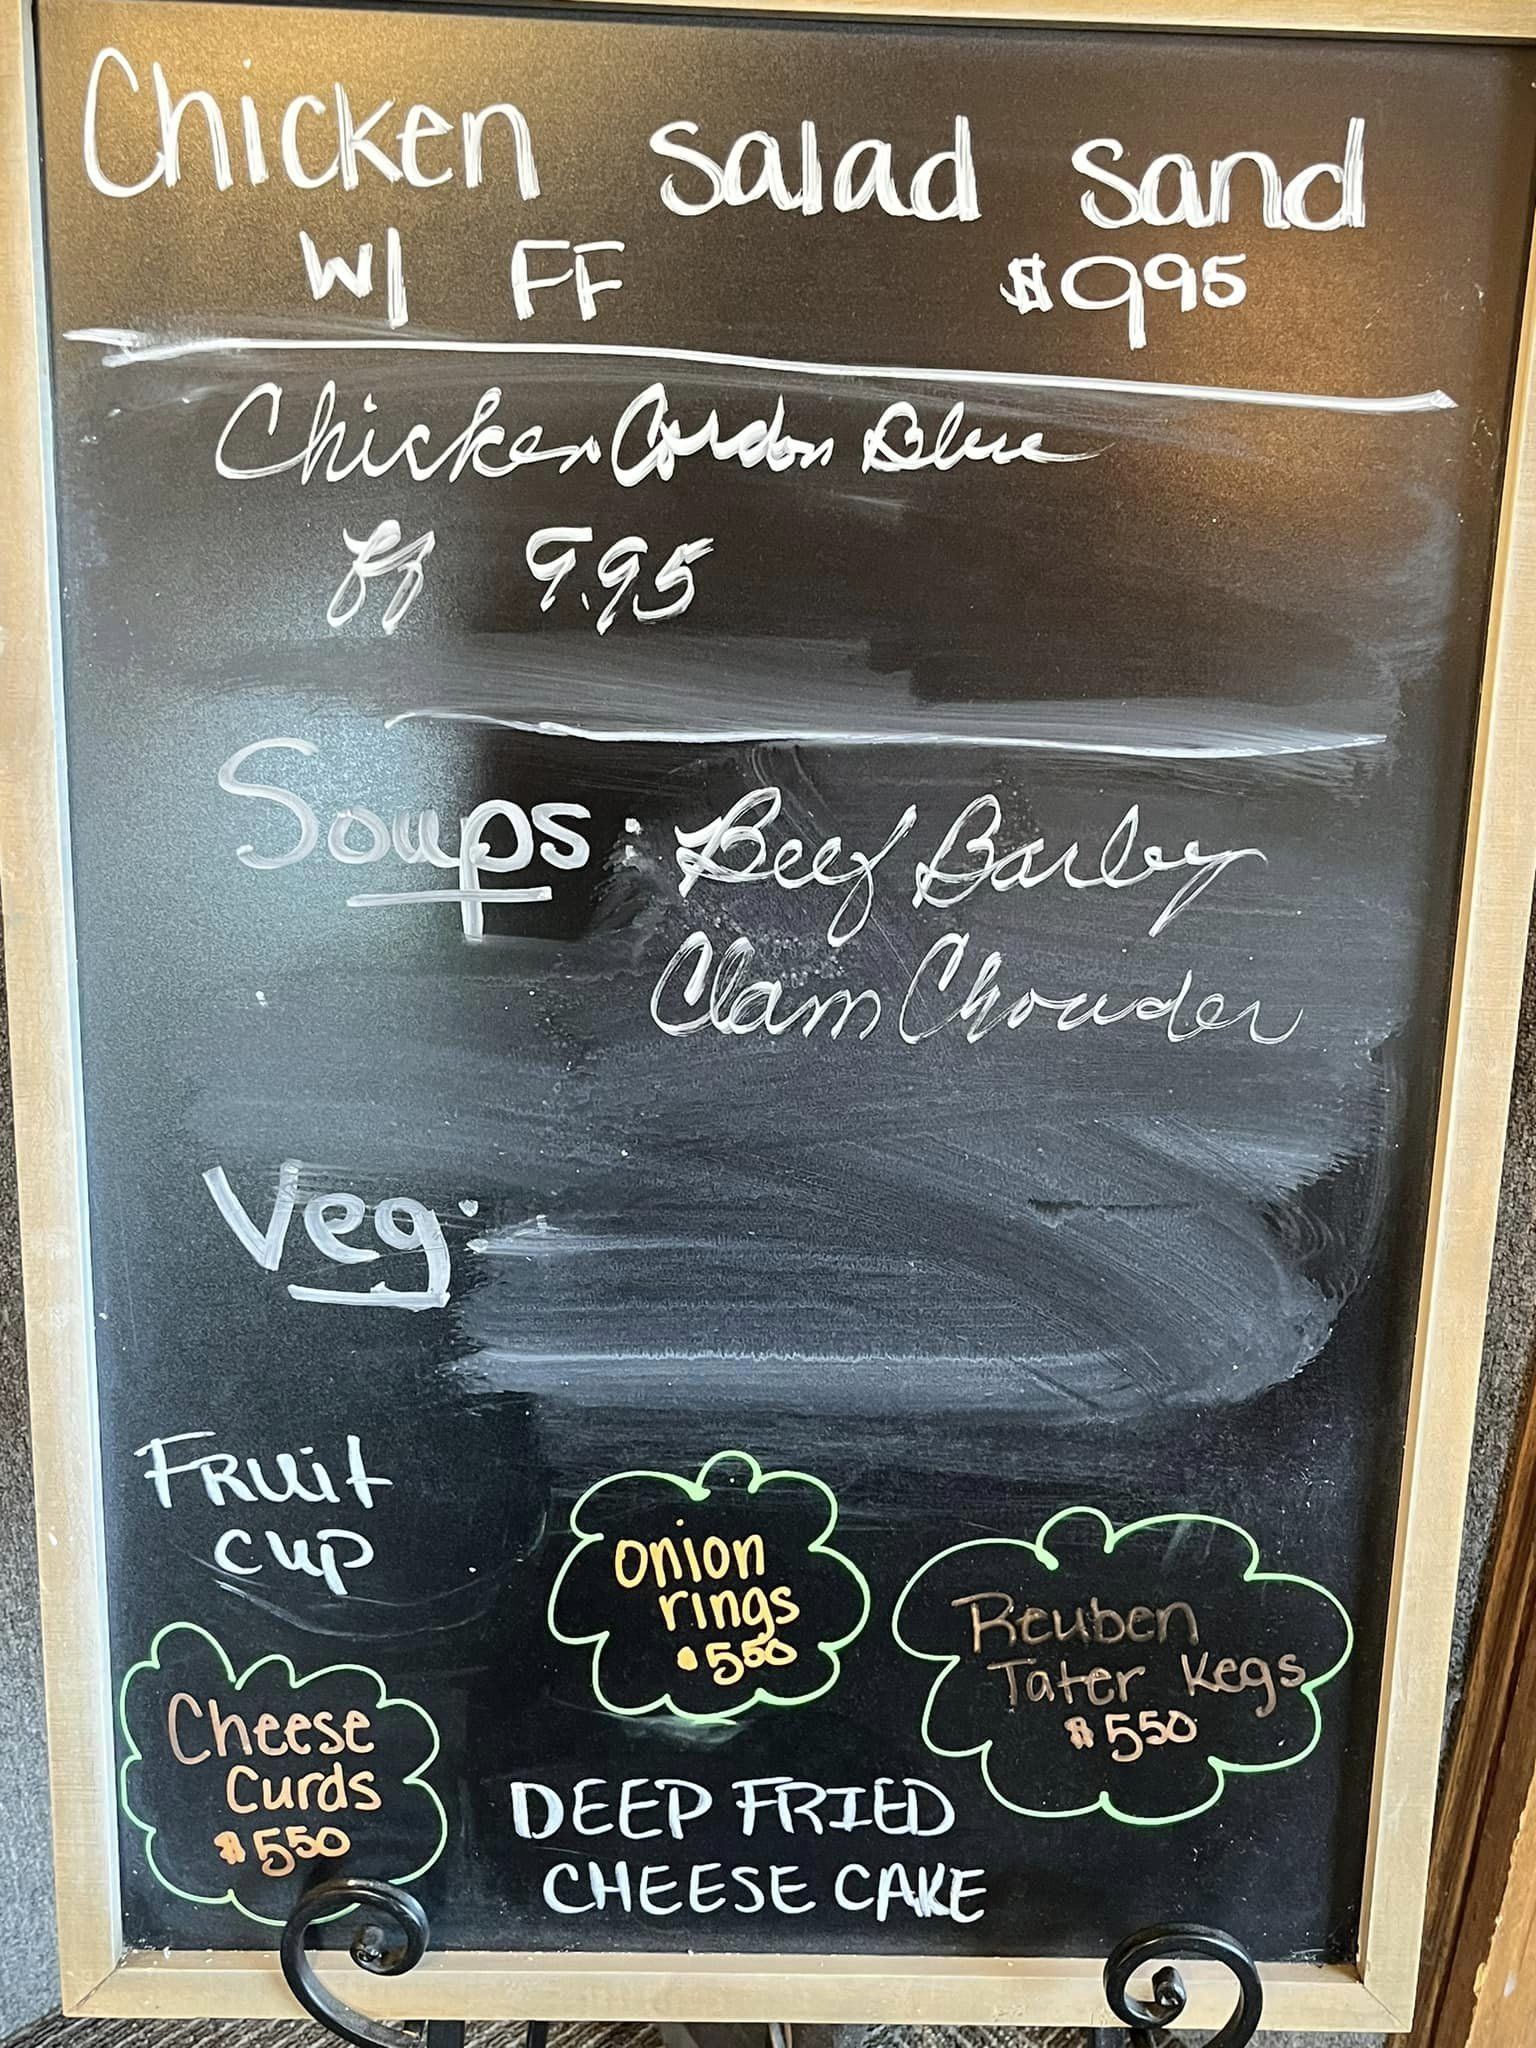 Chicken Salad Sand
W/ FF $9.95
Chicken Cordon Blue
ff 9.95
Soups: Beef Barley
Clam Chowder
Veg:
FRuit
cup
onion
rings
$550
Reuben
Tater Kegs
$550
Cheese
Curds
$550
DEEP FRIED
CHEESE CAKE